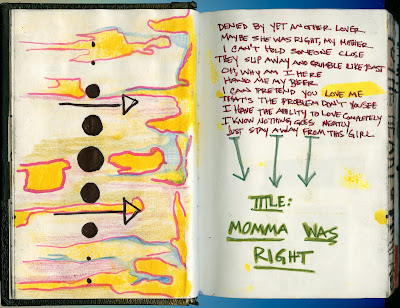 DENIED BY YET ANOTHER LOVER
MAYBE SHE WAS RIGHT, MY MOTHER
I CAN'T HOLD SOMEONE CLOSE
THEY SLIP AWAY AND CRUMBLE LIKE TOAST
OH, WHY AM I HERE
HAND ME MY BEER
I CAN PRETEND YOU LOVE ME
THAT'S THE PROBLEM DON'T YOU SEE
I HAVE THE ABILITY TO LOVE COMPLETELY
I KNOW NOTHING GOES NEATLY
JUST STAY AWAY FROM THIS GIRL
TITLE:
MOMMA WAS
RIGHT